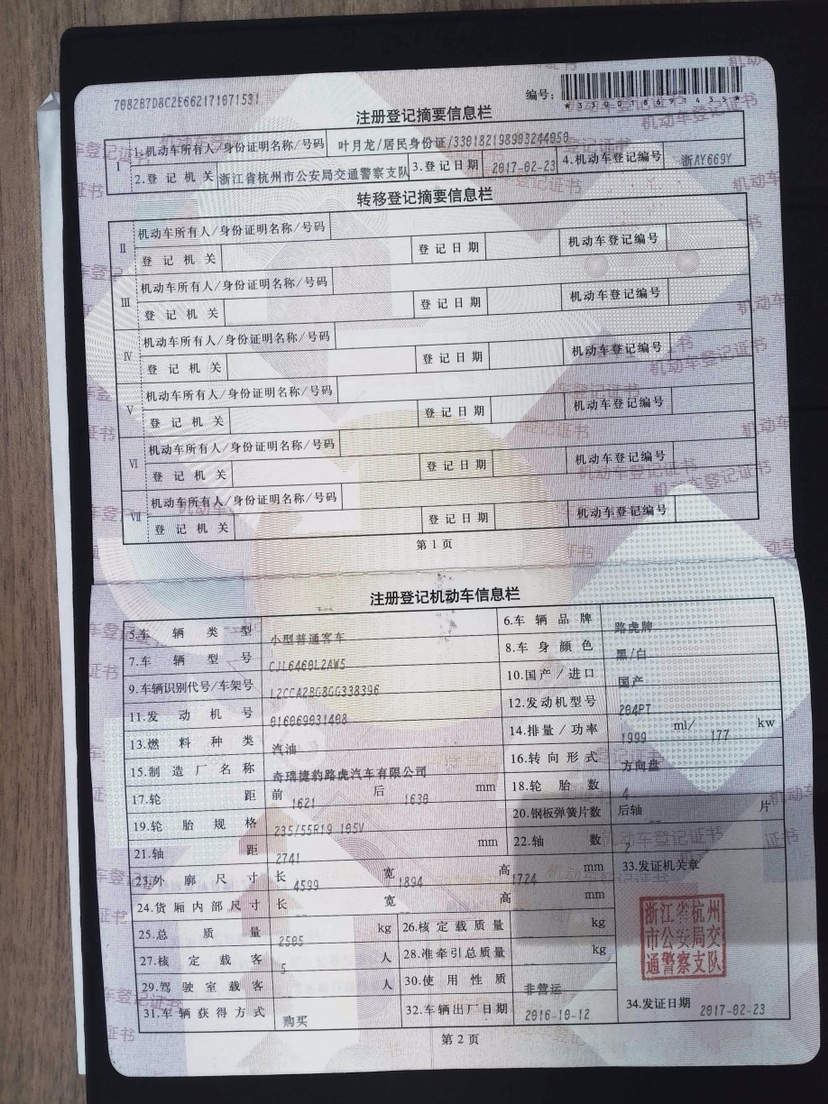 7082B7D8C2E662171071531
编号:
注册登记摘要信息栏
I 1.机动车所有人/身份证明名称/号码 叶月龙/居民身份证/330182198903244050
2.登记机关 浙江省杭州市公安局交通警察支队 3.登记日期 2017-02-23 4.机动车登记编号 浙AY669Y
转移登记摘要信息栏
II 机动车所有人/身份证明名称/号码
登记机关 登记日期 机动车登记编号
III 机动车所有人/身份证明名称/号码
登记机关 登记日期 机动车登记编号
IV 机动车所有人/身份证明名称/号码
登记机关 登记日期 机动车登记编号
V 机动车所有人/身份证明名称/号码
登记机关 登记日期 机动车登记编号
VI 机动车所有人/身份证明名称/号码
登记机关 登记日期 机动车登记编号
VII 机动车所有人/身份证明名称/号码
登记机关 登记日期 机动车登记编号
第1页
注册登记机动车信息栏
5.车辆类型 小型普通客车 6.车辆品牌 路虎牌
7.车辆型号 CJL6460L2AW5 8.车身颜色 黑/白
9.车辆识别代号/车架号 L2CCA2BG8GG338396 10.国产/进口 国产
11.发动机号 016069031408 12.发动机型号 204PT
13.燃料种类 汽油 14.排量/功率 1999 ml/ 177 kw
15.制造厂名称 奇瑞捷豹路虎汽车有限公司 16.转向形式 方向盘
17.轮距 前 1621 后 1630 mm 18.轮胎数 4
19.轮胎规格 235/55R19 105V 20.钢板弹簧片数 后轴 -- 片
21.轴距 2741 mm 22.轴数 2
23.外廓尺寸 长 4599 宽 1894 高 1724 mm 33.发证机关章
24.货厢内部尺寸 长 -- 宽 -- 高 -- mm
25.总质量 2505 kg 26.核定载质量 -- kg
27.核定载客 5 人 28.准牵引总质量 -- kg
29.驾驶室载客 -- 人 30.使用性质 非营运
31.车辆获得方式 购买 32.车辆出厂日期 2016-10-12 34.发证日期 2017-02-23
浙江省杭州
市公安局交
通警察支队
第2页